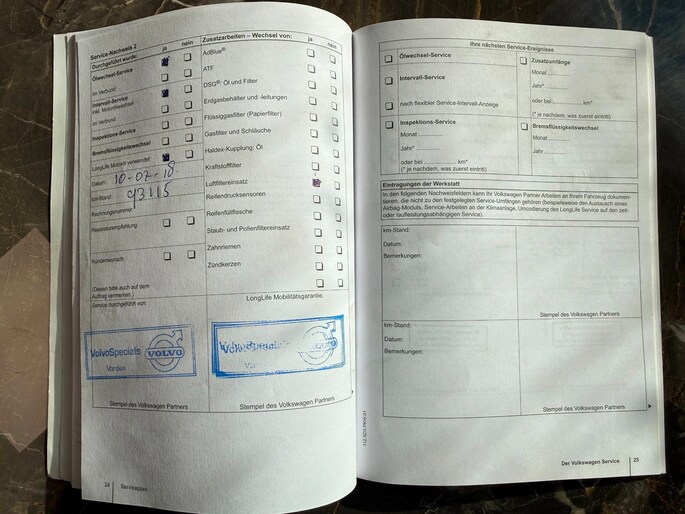 Service-Nachweis 2
Durchgeführt wurde: ja nein
Ölwechsel-Service
im Verbund
Intervall-Service
inkl. Motorölwechsel
im Verbund
Inspektions-Service
Bremsflüssigkeitswechsel
LongLife Mobilöl verwendet:
Datum: 10-07-18
km-Stand: 93115
Rechnungsnummer:
Reparaturempfehlung
Kundenwunsch
(Dieses bitte auch auf dem
Auftrag vermerken.)
Service durchgeführt von:
VolvoSpecials VOLVO
Vorden
Stempel des Volkswagen Partners
24 Serviceplan
Zusatzarbeiten – Wechsel von: ja nein
AdBlue®
ATF
DSG®: Öl und Filter
Erdgasbehälter und -leitungen
Flüssiggasfilter (Papierfilter)
Gasfilter und Schläuche
Haldex-Kupplung: Öl
Kraftstofffilter
Luftfiltereinsatz
Reifendrucksensoren
Reifenfüllflasche
Staub- und Pollenfiltereinsatz
Zahnriemen
Zündkerzen
LongLife Mobilitätsgarantie:
VolvoSpecials VOLVO
Stempel des Volkswagen Partners
Ihre nächsten Service-Ereignisse
Ölwechsel-Service
Intervall-Service
nach flexibler Service-Intervall-Anzeige
Inspektions-Service
Monat
Jahr*
oder bei km*
(* je nachdem, was zuerst eintritt)
Zusatzumfänge
Monat
Jahr*
oder bei km*
(* je nachdem, was zuerst eintritt)
Bremsflüssigkeitswechsel
Monat
Jahr
Eintragungen der Werkstatt
In den folgenden Nachweisfeldern kann Ihr Volkswagen Partner Arbeiten an Ihrem Fahrzeug dokumen-
tieren, die nicht zu den festgelegten Service-Umfängen gehören (beispielsweise den Austausch eines
Airbag-Moduls, Service-Arbeiten an der Klimaanlage, Umcodierung des LongLife Service auf den zeit-
oder laufleistungsabhängigen Service).
km-Stand:
Datum:
Bemerkungen:
Stempel des Volkswagen Partners
km-Stand:
Datum:
Bemerkungen:
Stempel des Volkswagen Partners
Der Volkswagen Service 25